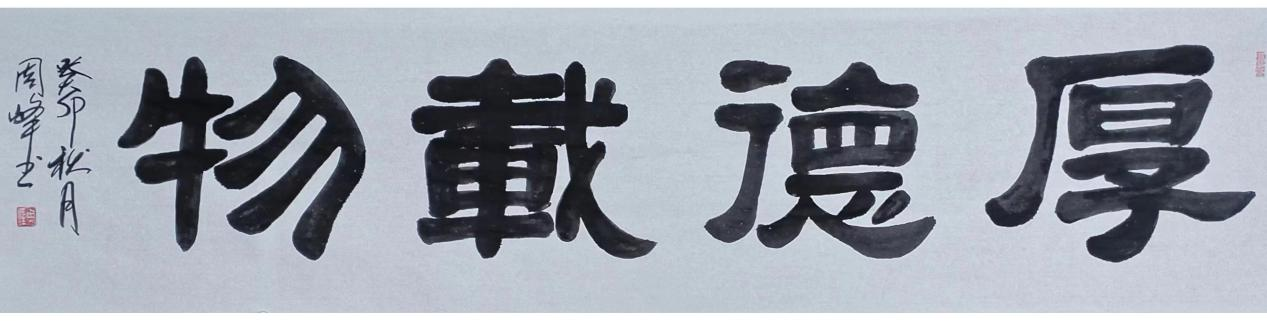 厚德載物
癸卯秋月
周峰书